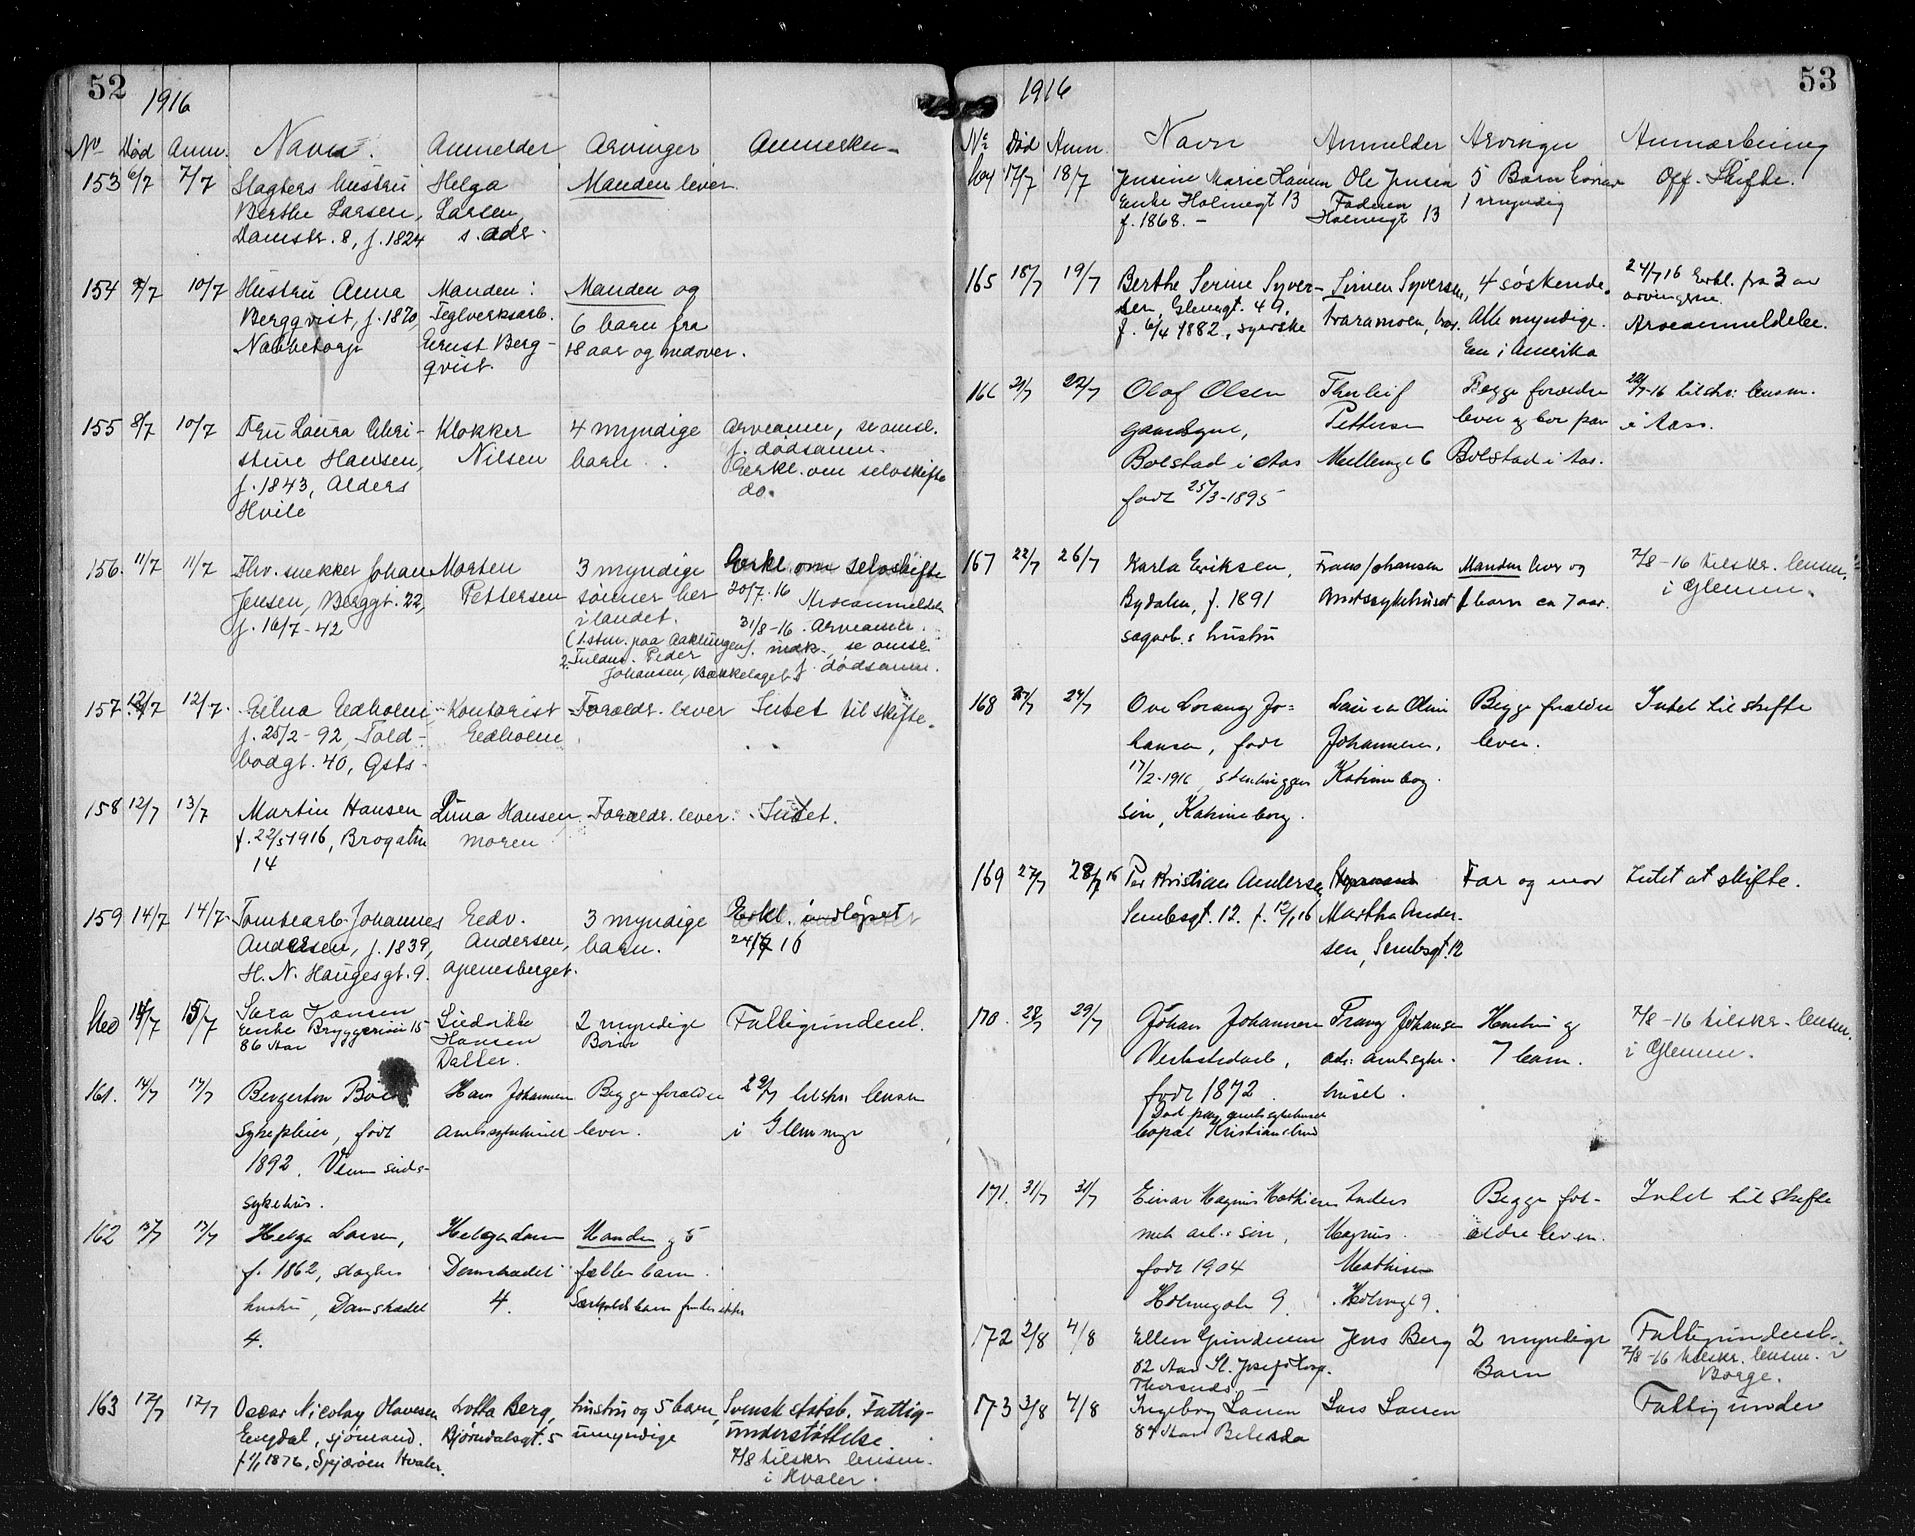 52
1916
No Død Anm. Navn. Anmelder Arvinger Anmerkn-
153 6/7 7/7 Slagters hustru Helga Manden lever.
Berthe Larsen, Larsen,
Damstr. 8, f. 1824 s. adr.
154 9/7 10/7 Hustru Anna Manden: Manden og
Bergqvist, f. 1870, Teglverksarb. 6 barn fra
Nabbetorp Ernst Berg- 18 aar og nedover.
qvist.
155 8/7 10/7 Fru Laura Chri- Klokker 4 myndige Arveanm, se omsl.
stine Hansen, Nilsen barn. f. dødsanm.
f. 1843, Alders Erkl. om selvskifte
Hvile do.
156. 11/7 11/7 Fhv. snekker Johan Morten 3 myndige Erkl. om selvskifte
Jensen, Berggt. 22, Pettersen sønner her 20/7.16 Arveanmeldelse
f. 16/7-42 i landet. 31/8-16. Arveanm.
(1 stm. paa f. medk., se omsl.
2. Peder f. dødsanm.
Johansen, Bækkelaget.
157. 12/7 12/7. Edna Edholm, Kontorist Forældr. lever Intet til skifte.
f. 25/2-92, Told- Edholm
bodgt. 40, Gsts.
158 12/7 13/7 Martin Hansen Lina Hansen, Forældr. lever. Intet.
f. 22/5 1916, Brogaten moren
14
159 14/7 14/7. Tomtearb. Johannes Edv. 3 myndige Erkl. indløpet
Andersen, f. 1839, Andersen, barn. 24/7 16
H. N. Haugesgt. 9. Apenesberget.
160 14/7 15/7 Sara Jansen 2 myndige Fattigunderst.
Enke Bryggeriv. 15 Hansen Børn
86 Aar Datter.
161. 14/7 17/7 Hans Johannesen Begge forældre 29/7 tilskr. lensm
Sykepleier, født Amtssykehuset lever. i Glemmen
1892. Veum sinds-
sykehus.
162 17/7 17/7 Helga Larsen, Helge Larsen Manden og 5
f. 1862, slagters Damstrædet fælles barn.
hustru, Damstrædet 4. Særkuldsbarn findes ikke
4.
163 17/7 17/7 Oscar Nicolay Olavesen Lotta Berg, hustru og 5 barn, Svensk statsb. Fattig-
Engdal, sjømand. Bjørndalsgt. 5 umyndige understøttelse
f. 1/1 1876, Spjærøen Hvaler. 7/8 tilskr. lensm.
i Hvaler.
53
1916
No Død Anm. Navn Anmelder Arvinger Anmærkning
164 17/7 18/7 Jensine Marie Hansen Ole Jensen 5 Børn hvorav Off. Skifte.
Enke Holmegt 13 Faderen 1 myndig
f. 1868.- Holmegt 13
165 18/7 19/7 Berthe Serine Syver- Simen Syversen, 4 søskende. 24/7 16 Erkl. fra 3 av
sen, Glemgt. 49, Alle myndige. arvingerne.
f. 6/4 1882, syerske Varamoen, her. En i Amerika Arveanmeldelse.
166 21/7 22/7 Olaf Olsen Thorleif Begge forældre 28/7-16 tilskr. lensm.
Pettersen lever og bor paa i Aas.
Bolstad i Aas Møllergt 6 Bolstad i Aas.
født 25/3-1895
167 22/7 26/7 Karla Eriksen, Frans Johansen Manden lever og 7/8-16 tilskr. lensm.
Bydalen, f. 1891 Amtssykehuset 1 barn ca 7 aar. i Glemm.
sagarb.s hustru
168 27/7 27/7 Ove Lorang Jo= Laura Oline Begge forældre Intet til skifte
hansen, født Johannesen, lever.
17/2-1916, stenhuggers Katrineborg.
søn, Katrineborg.
169 27/7 28/7 16 Per Kristian Andersen Far og mor Intet at skifte.
Sembsgt. 12. f. 12/1 16 Martha Ander-
sen, Sembsgt. 12
170. 28/7 29/7 Johan Johannesen Franz Johansen Hustru og 7/8-16 tilskr. lensm.
Verkstedarb, adr. amtssyke- 7 barn. i Glemm.
født 1872. huset.
Død paa amtssykehuset
bopæl Kristianslund
171. 31/7 31/7 Einar Magnus Mathisen Anders Begge for- Intet til skifte
mek arb.s søn, Magnus ældre lever.
født 1904 Mathisen
Holmegate 9. Holmegt 9.
172 2/8 4/8 Ellen Gundersen Jens Berg 2 myndige Fattigunderst.
82 Aar St. Josefs Hosp. Børn 7/8-16 tilskr. lensm. i
Borge.
173 3/8 4/8 Ingeborg Larsen Lars Larsen Fattigunder
84 Aar